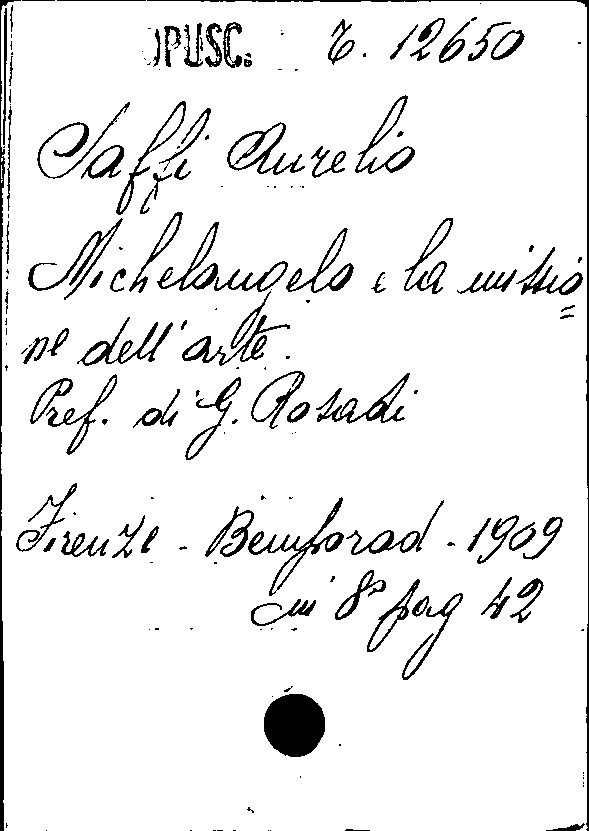 OPUSC. T. 12650
Saffi Aurelio
Michelangelo e la missio=
ne dell'arte.
Pref. di G. Rosadi
Firenze - Bemporad - 1909
in 8° pag 42